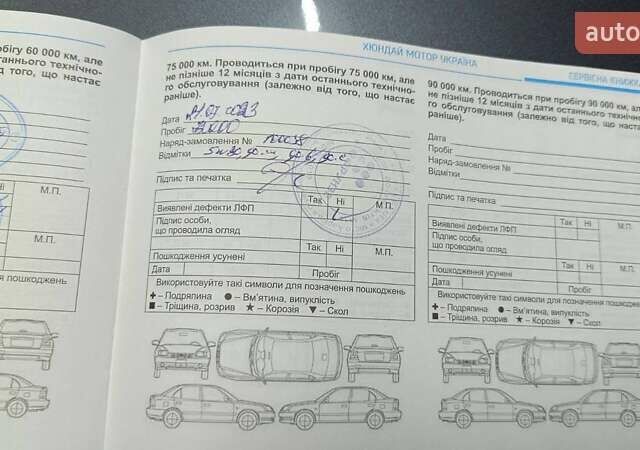 auto
ХЮНДАЙ МОТОР УКРАЇНА
СЕРВІСНА КНИЖКА
обігу 60 000 км, але
останнього технічно-
від того, що настає
Ні
М.П.
Ні
М.П.
пошкоджень
75 000 км. Проводиться при пробігу 75 000 км, але
не пізніше 12 місяців з дати останнього технічно-
го обслуговування (залежно від того, що настає
раніше).
Дата
Пробіг
Наряд-замовлення №
Відмітки
Підпис та печатка
Виявлені дефекти ЛФП Так Ні М.П.
Підпис особи,
що проводила огляд
Пошкодження усунені Так Ні М.П.
Дата Пробіг
Використовуйте такі символи для позначення пошкоджень
+ – Подряпина ● – Вм'ятина, випуклість
■ – Тріщина, розрив ★ – Корозія ▼ – Скол
90 000 км. Проводиться при пробігу 90 000 км, але
не пізніше 12 місяців з дати останнього технічно-
го обслуговування (залежно від того, що настає
раніше).
Дата
Пробіг
Наряд-замовлення №
Відмітки
Підпис та печатка
Виявлені дефекти ЛФП Так Ні М.П.
Підпис особи,
що проводила огляд
Пошкодження усунені Так Ні М.П.
Дата Пробіг
Використовуйте такі символи для позначення пошкоджень
+ – Подряпина ● – Вм'ятина, випуклість
■ – Тріщина, розрив ★ – Корозія ▼ – Скол